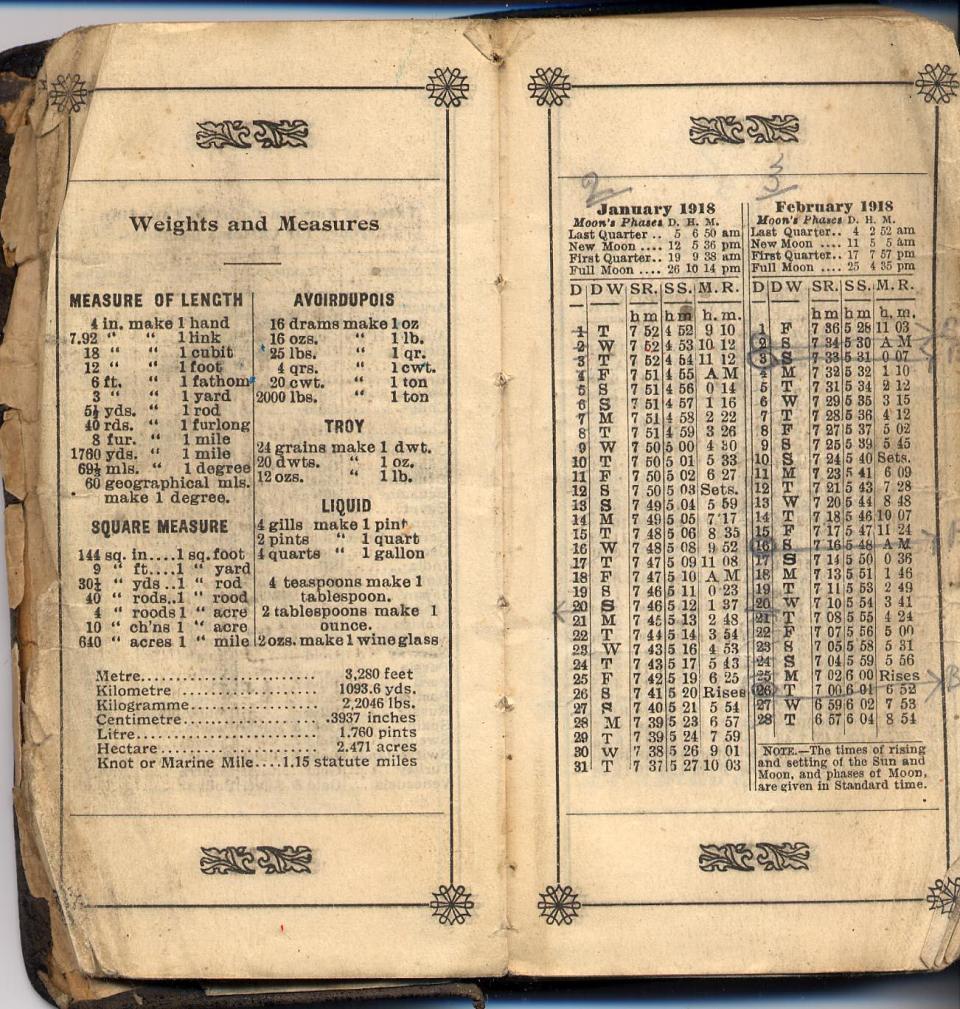 Weights and Measures
MEASURE OF LENGTH
4 in. make 1 hand
7.92 " " 1 link
18 " " 1 cubit
12 " " 1 foot
6 ft. " 1 fathom
3 " " 1 yard
5½ yds. " 1 rod
40 rds. " 1 furlong
8 fur. " 1 mile
1760 yds. " 1 mile
69½ mls. " 1 degree
60 geographical mls.
make 1 degree.
SQUARE MEASURE
144 sq. in....1 sq. foot
9 " ft....1 " yard
30¼ " yds..1 " rod
40 " rods..1 " rood
4 " roods 1 " acre
10 " ch'ns 1 " acre
640 " acres 1 " mile
AVOIRDUPOIS
16 drams make 1 oz
16 ozs. " 1 lb.
25 lbs. " 1 qr.
4 qrs. " 1 cwt.
20 cwt. " 1 ton
2000 lbs. " 1 ton
TROY
24 grains make 1 dwt.
20 dwts. " 1 oz.
12 ozs. " 1 lb.
LIQUID
4 gills make 1 pint
2 pints " 1 quart
4 quarts " 1 gallon
4 teaspoons make 1
tablespoon.
2 tablespoons make 1
ounce.
2 ozs. make 1 wineglass
Metre........................ 3,280 feet
Kilometre .................... 1093.6 yds.
Kilogramme.................. 2,2046 lbs.
Centimetre .................. .3937 inches
Litre.......................... 1.760 pints
Hectare ...................... 2.471 acres
Knot or Marine Mile....1.15 statute miles
2
January 1918
Moon's Phases D. H. M.
Last Quarter .. 5 6 50 am
New Moon .... 12 5 36 pm
First Quarter.. 19 9 38 am
Full Moon .... 26 10 14 pm
D DW SR. SS. M.R.
h m h m h. m.
1 T 7 52 4 52 9 10
2 W 7 52 4 53 10 12
3 T 7 52 4 54 11 12
4 F 7 51 4 55 A M
5 S 7 51 4 56 0 14
6 S 7 51 4 57 1 16
7 M 7 51 4 58 2 22
8 T 7 51 4 59 3 26
9 W 7 50 5 00 4 30
10 T 7 50 5 01 5 33
11 F 7 50 5 02 6 27
12 S 7 50 5 03 Sets.
13 S 7 49 5 04 5 59
14 M 7 49 5 05 7 17
15 T 7 48 5 06 8 35
16 W 7 48 5 08 9 52
17 T 7 47 5 09 11 08
18 F 7 47 5 10 A M
19 S 7 46 5 11 0 23
20 S 7 46 5 12 1 37
21 M 7 45 5 13 2 48
22 T 7 44 5 14 3 54
23 W 7 43 5 16 4 53
24 T 7 43 5 17 5 43
25 F 7 42 5 19 6 25
26 S 7 41 5 20 Rises
27 S 7 40 5 21 5 54
28 M 7 39 5 23 6 57
29 T 7 39 5 24 7 59
30 W 7 38 5 26 9 01
31 T 7 37 5 27 10 03
3
February 1918
Moon's Phases D. H. M.
Last Quarter.. 4 2 52 am
New Moon .... 11 5 5 am
First Quarter.. 17 7 57 pm
Full Moon .... 25 4 35 pm
D DW SR. SS. M.R.
h m h m h. m.
1 F 7 36 5 28 11 03
2 S 7 34 5 30 A M
3 S 7 33 5 31 0 07
4 M 7 32 5 32 1 10
5 T 7 31 5 34 2 12
6 W 7 29 5 35 3 15
7 T 7 28 5 36 4 12
8 F 7 27 5 37 5 02
9 S 7 25 5 39 5 45
10 S 7 24 5 40 Sets.
11 M 7 23 5 41 6 09
12 T 7 21 5 43 7 28
13 W 7 20 5 44 8 48
14 T 7 18 5 46 10 07
15 F 7 17 5 47 11 24
16 S 7 16 5 48 A M
17 S 7 14 5 50 0 36
18 M 7 13 5 51 1 46
19 T 7 11 5 53 2 49
20 W 7 10 5 54 3 41
21 T 7 08 5 55 4 24
22 F 7 07 5 56 5 00
23 S 7 05 5 58 5 31
24 S 7 04 5 59 5 56
25 M 7 02 6 00 Rises
26 T 7 00 6 01 6 52
27 W 6 59 6 02 7 53
28 T 6 57 6 04 8 54
NOTE.—The times of rising
and setting of the Sun and
Moon, and phases of Moon,
are given in Standard time.